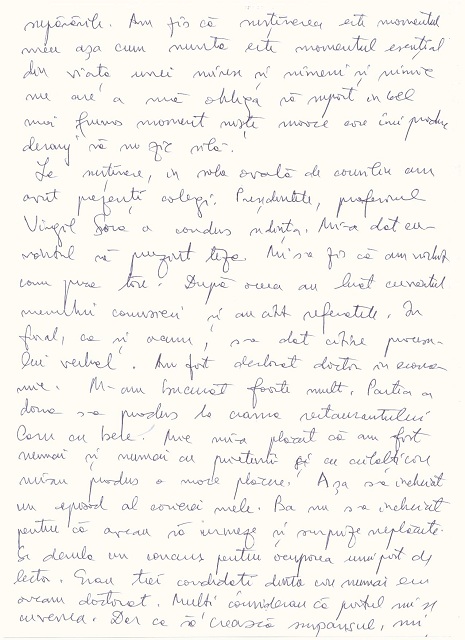 supărările. Am zis că susținerea este momentul
meu așa cum nunta este momentul esențial
din viața unei mirese și nimeni și nimic
nu are a mă obliga să suport în cel
mai frumos moment niște morce care îmi produc
deranj să nu zic silă.
La susținere, în sala ovală de consiliu am
avut prezenți colegi. Președintele, profesorul
Virgil Sora a condus ședința. Mi-a dat cu-
vântul să prezint teza. Mi s-a zis că am vorbit
cam prea tare. După aceea au luat cuvântul
membrii comisiei și au citit referatele. În
final, ca și acum, s-a dat citire proces-
lui verbal. Am fost declarat doctor în econo-
mie. M-am bucurat foarte mult. Partea a
doua s-a produs la crama restaurantului
Caru cu bere. Mie mi-a plăcut că am fost
numai și numai cu prietenii și cu ceilalți care
mi-au produs o mare plăcere. Așa s-a încheiat
un episod al carierei mele. Ba nu s-a încheiat
pentru că aveau să urmeze și surprize neplăcute.
S-a derulat un concurs pentru ocuparea unui post de
lector. Erau trei candidați dintre care numai eu
aveam doctorat. Mulți considerau că postul mi se
cuvenea. Dar ca să crească suspansul, mi